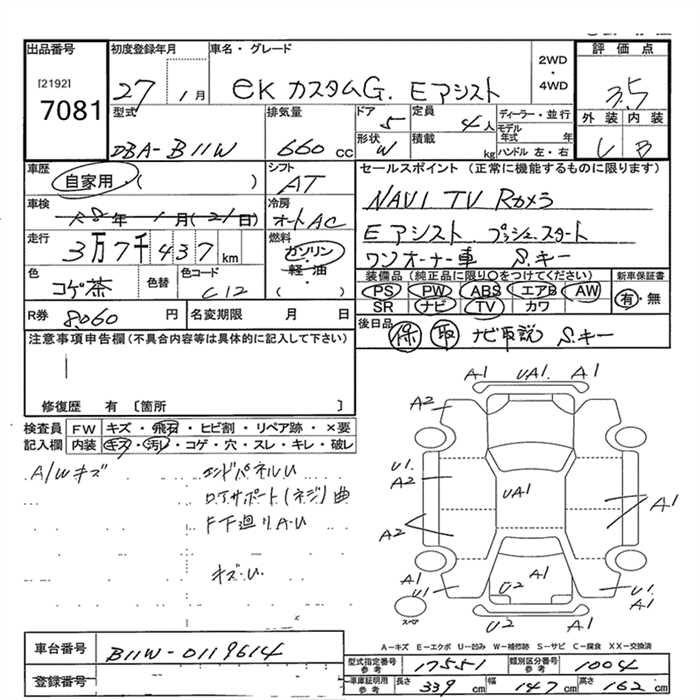 出品番号 初度登録年月 車名・グレード 2WD・4WD 評価点
[2192] 7081 27年 1月 eK カスタムG. Eアシスト 3.5
型式 排気量 ドア 定員 ディーラー・並行 外装 内装
DBA-B11W 660cc 5 4人 モデル年式 年 C B
形状 W 積載 kg ハンドル 左・右
車歴 自家用 ( ) シフト AT セールスポイント (正常に機能するものに限ります)
車検 R8年 1月 (21日) 冷房 オートAC NAVI TV Rカメラ
走行 3万7千437km 燃料 ガソリン・軽油 ( ) Eアシスト プッシュスタート
ワンオーナー車 S.キー
色 コゲ茶 色替 色コード C12 装備品 (純正品に限り○をつけてください) 新車保証書
PS PW ABS エアB AW 有・無
SR ナビ TV カワ
R券 8,060円 名変期限 月 日 後日品 保 取 ナビ取説 S.キー
注意事項申告欄 (不具合内容等は具体的に記入して下さい)
修復歴 有 〔箇所 〕
検査員 FW キズ・飛石・ヒビ割・リペア跡・×要
記入欄 内装 キズ・汚レ・コゲ・穴・スレ・キレ・破レ
A/Wキズ エンドパネルU
ロアサポート(ネジ)曲
F下廻りA・U
キズ・U
A1 UA1. A1
A2
U1 A2 UA1 A1
A2
A1 U1 U2 A1 U1 A1
スペア U2 A1
A-キズ E-エクボ U-凹み W-補修跡 S-サビ C-腐食 XX-交換済
車台番号 B11W-0119614
登録番号
型式指定番号 参考 17551 類別区分番号 参考 1004
車庫証明用 参考 長さ 339cm 幅 147cm 高さ 162cm